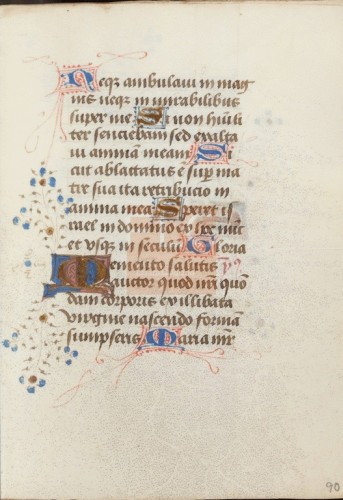 Neqz ambulaui in mag
nis neqz in mirabilibus
super me Si non humili
ter senciebam sed exalta
ui animam meam Si
cut ablactatus ē sup ma
tre sua ita retribucio in
anima mea Speret is
rael in domino ex hoc nūc
et vsqz in seculū Gloria
Memento salutis
auctor quod nr̄i quon
dam corporis ex illibata
virgine nascendo formā
sumpseris Maria mr̄
90